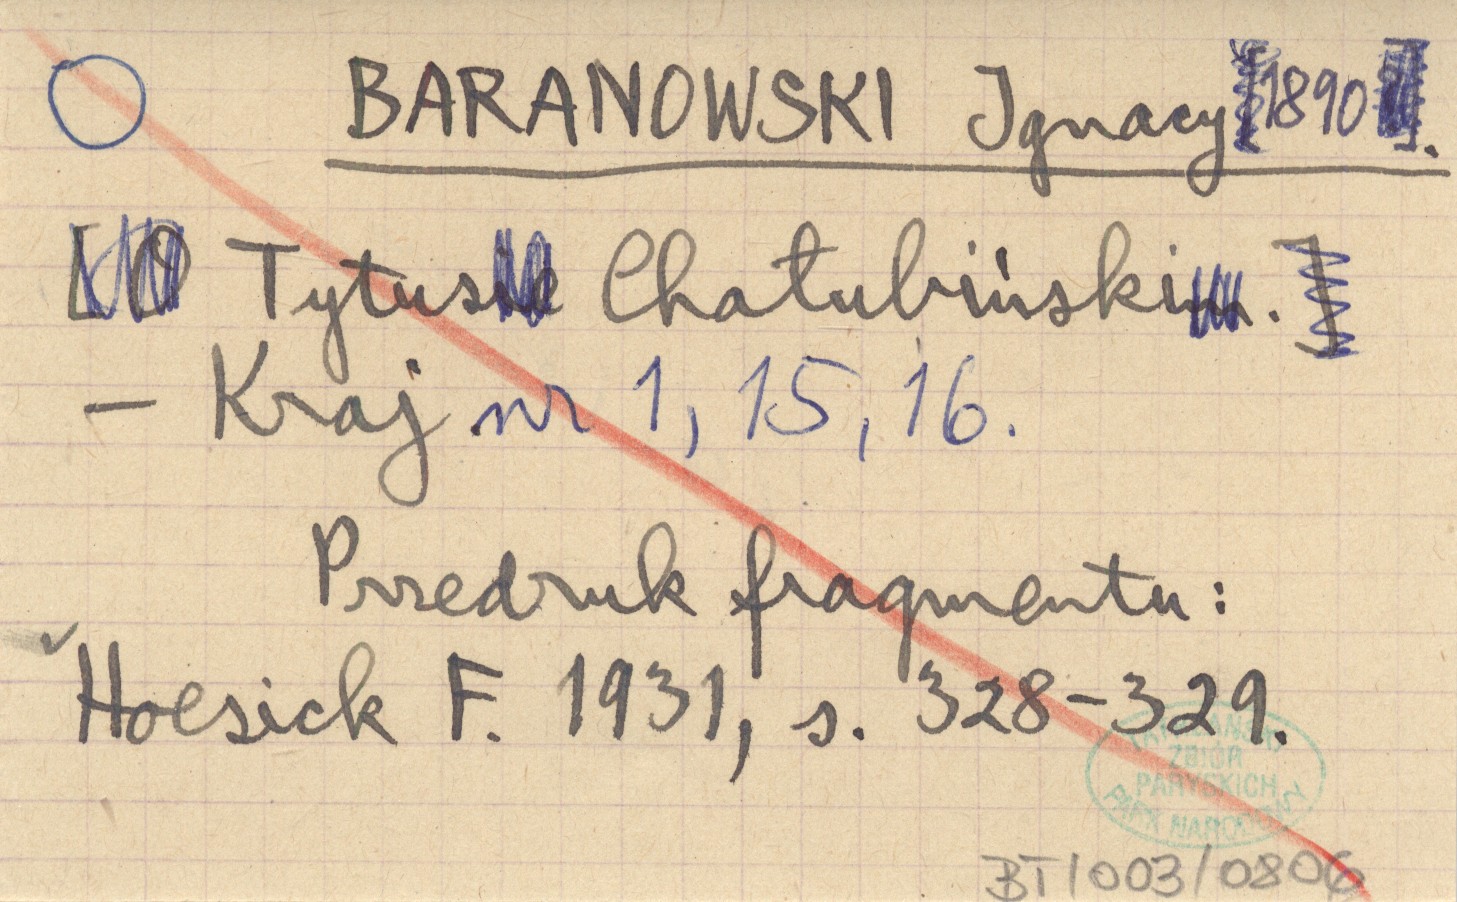 BARANOWSKI Ignacy 1890.
Tytus Chałubiński.
– Kraj nr 1, 15, 16.
Przedruk fragmentu:
Hoesick F. 1931, s. 328–329.
TATRZAŃSKI
ZBIÓR
PARYSKICH
PARK NARODOWY
BT/003/0806